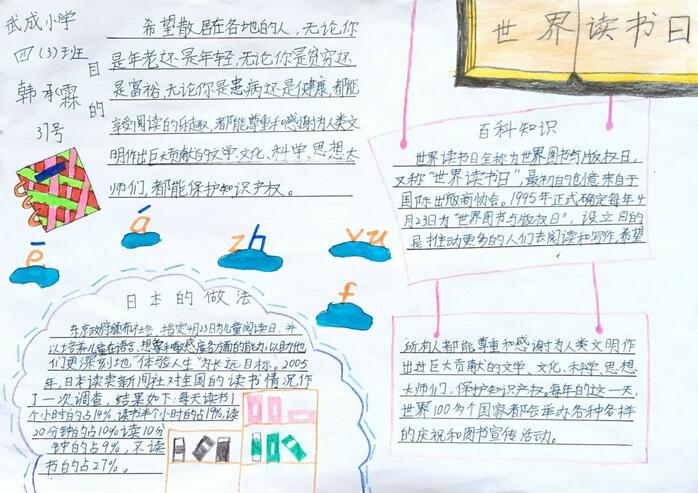 武成小学
四(3)班
韩承霖
37号
目的
希望散居在各地的人，无论你
是年老还是年轻，无论你是贫穷还
是富裕，无论你是患病还是健康，都能
享受阅读的乐趣，都能尊重和感谢为人类文
明作出巨大贡献的文学、文化、科学、思想大
师们，都能保护知识产权。
世界读书日
百科知识
世界读书日全称为世界图书与版权日，
又称“世界读书日”，最初的创意来自于
国际出版商协会。1995年正式确定每年4
月23日为“世界图书与版权日”，设立目的
是推动更多的人们去阅读和写作，希望
所有人都能尊重和感谢为人类文明作
出过巨大贡献的文学、文化、科学、思想
大师们，保护知识产权。每年的这一天，
世界100多个国家都会举办各种各样
的庆祝和图书宣传活动。
ē
á
zh
yu
f
日本的做法
指定4月23日为儿童阅读日，并
以培养儿童在语言、想象和敏感度各方面的能力，以助他
们更深刻地“体验人生”为长远目标。2005
年，日本读卖新闻社对全国的读书情况作
了一次调查，结果如下：每天读书1
个小时的占14%，读书半个小时的占19%，读
20分钟的占10%，读10分
钟的占9%，不读
书的占27%。